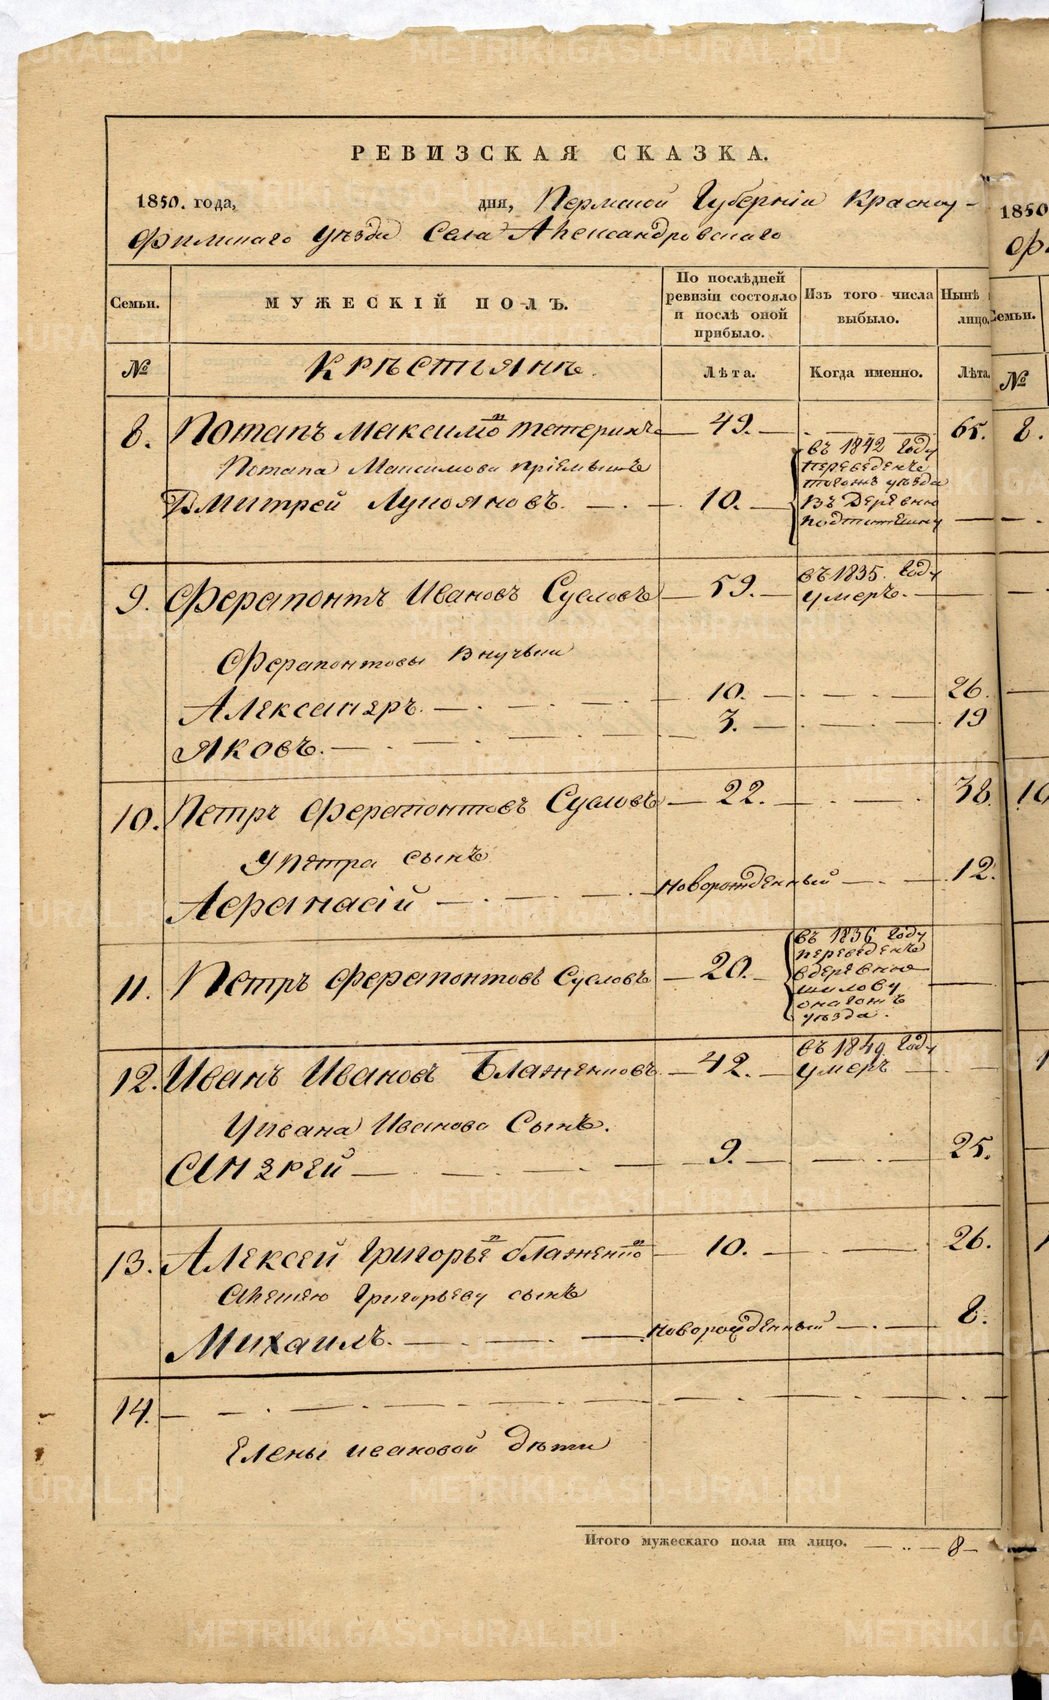 РЕВИЗСКАЯ СКАЗКА.
1850. года, дня, Пермской Губерніи Красноу-
фимскаго уѣзда Села Александровскаго
Семьи. МУЖЕСКІЙ ПОЛЪ. По послѣдней ревизіи состояло и послѣ оной прибыло. Изъ того числа выбыло. Нынѣ лицо.
№ Крѣстиянѣ. Лѣта. Когда именно. Лѣта.
8. Потапъ Максимо 49. 65.
Потапа Максимова пріемышъ
Дмитрей Лукояновъ. 10. въ 1842 году
переведенъ
тогожъ уѣзда
въ деревню
9. Ферапонтъ Ивановъ Сусловъ 59. въ 1835. году
умеръ.
Ферапонтовы внучьки
Александръ. 10. 26.
Яковъ. 3. 19
10. Петръ Ферапонтовъ Сусловъ 22. 38.
У Петра сынъ
Афанасій новорожденный 12.
11. Петръ Ферапонтовъ Сусловъ 20. въ 1836 году
переведенъ
в деревню
шилову
онагожъ
уѣзда.
12. Иванъ Ивановъ Блаженковъ. 42. въ 1849 году
умеръ
У Ивана Иванова Сынъ.
Андрей 9. 25.
13. Алексей Григорье 10. 26.
Алексею Григорьеву сынъ
Михаилъ. новорожденный 8.
14.
Елены ивановой дѣти
Итого мужескаго пола на лицо. 8
1850
Семьи.
№
8.